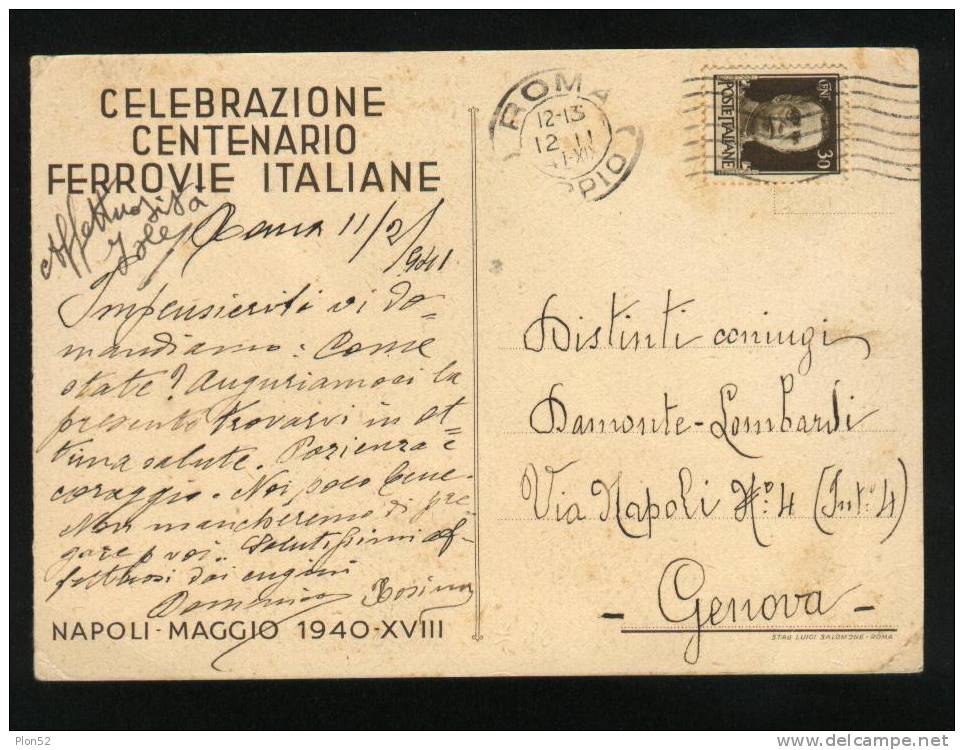 CELEBRAZIONE
CENTENARIO
FERROVIE ITALIANE
Affettuosità
Jole
Roma 11/2/
1941
Impensieriti vi do-
mandiamo: Come
state? Auguriamoci la
presente trovarvi in ot-
tima salute. Pazienza e
coraggio. Noi poco bene.
Non mancheremo di pre
gare p voi. Salutissimi af-
fettuosi dai cugini
Domenico Rosina
NAPOLI - MAGGIO 1940-XVIII
ROMA
12-13
12 II
41-XIX
APPIO
CENT 30
POSTE ITALIANE
Distinti coniugi
Damonte-Lombardi
Via Napoli N.º 4 (Int.º 4)
- Genova -
STAB LUIGI SALOMONE - ROMA
Pion52
http://www.delcampe.net